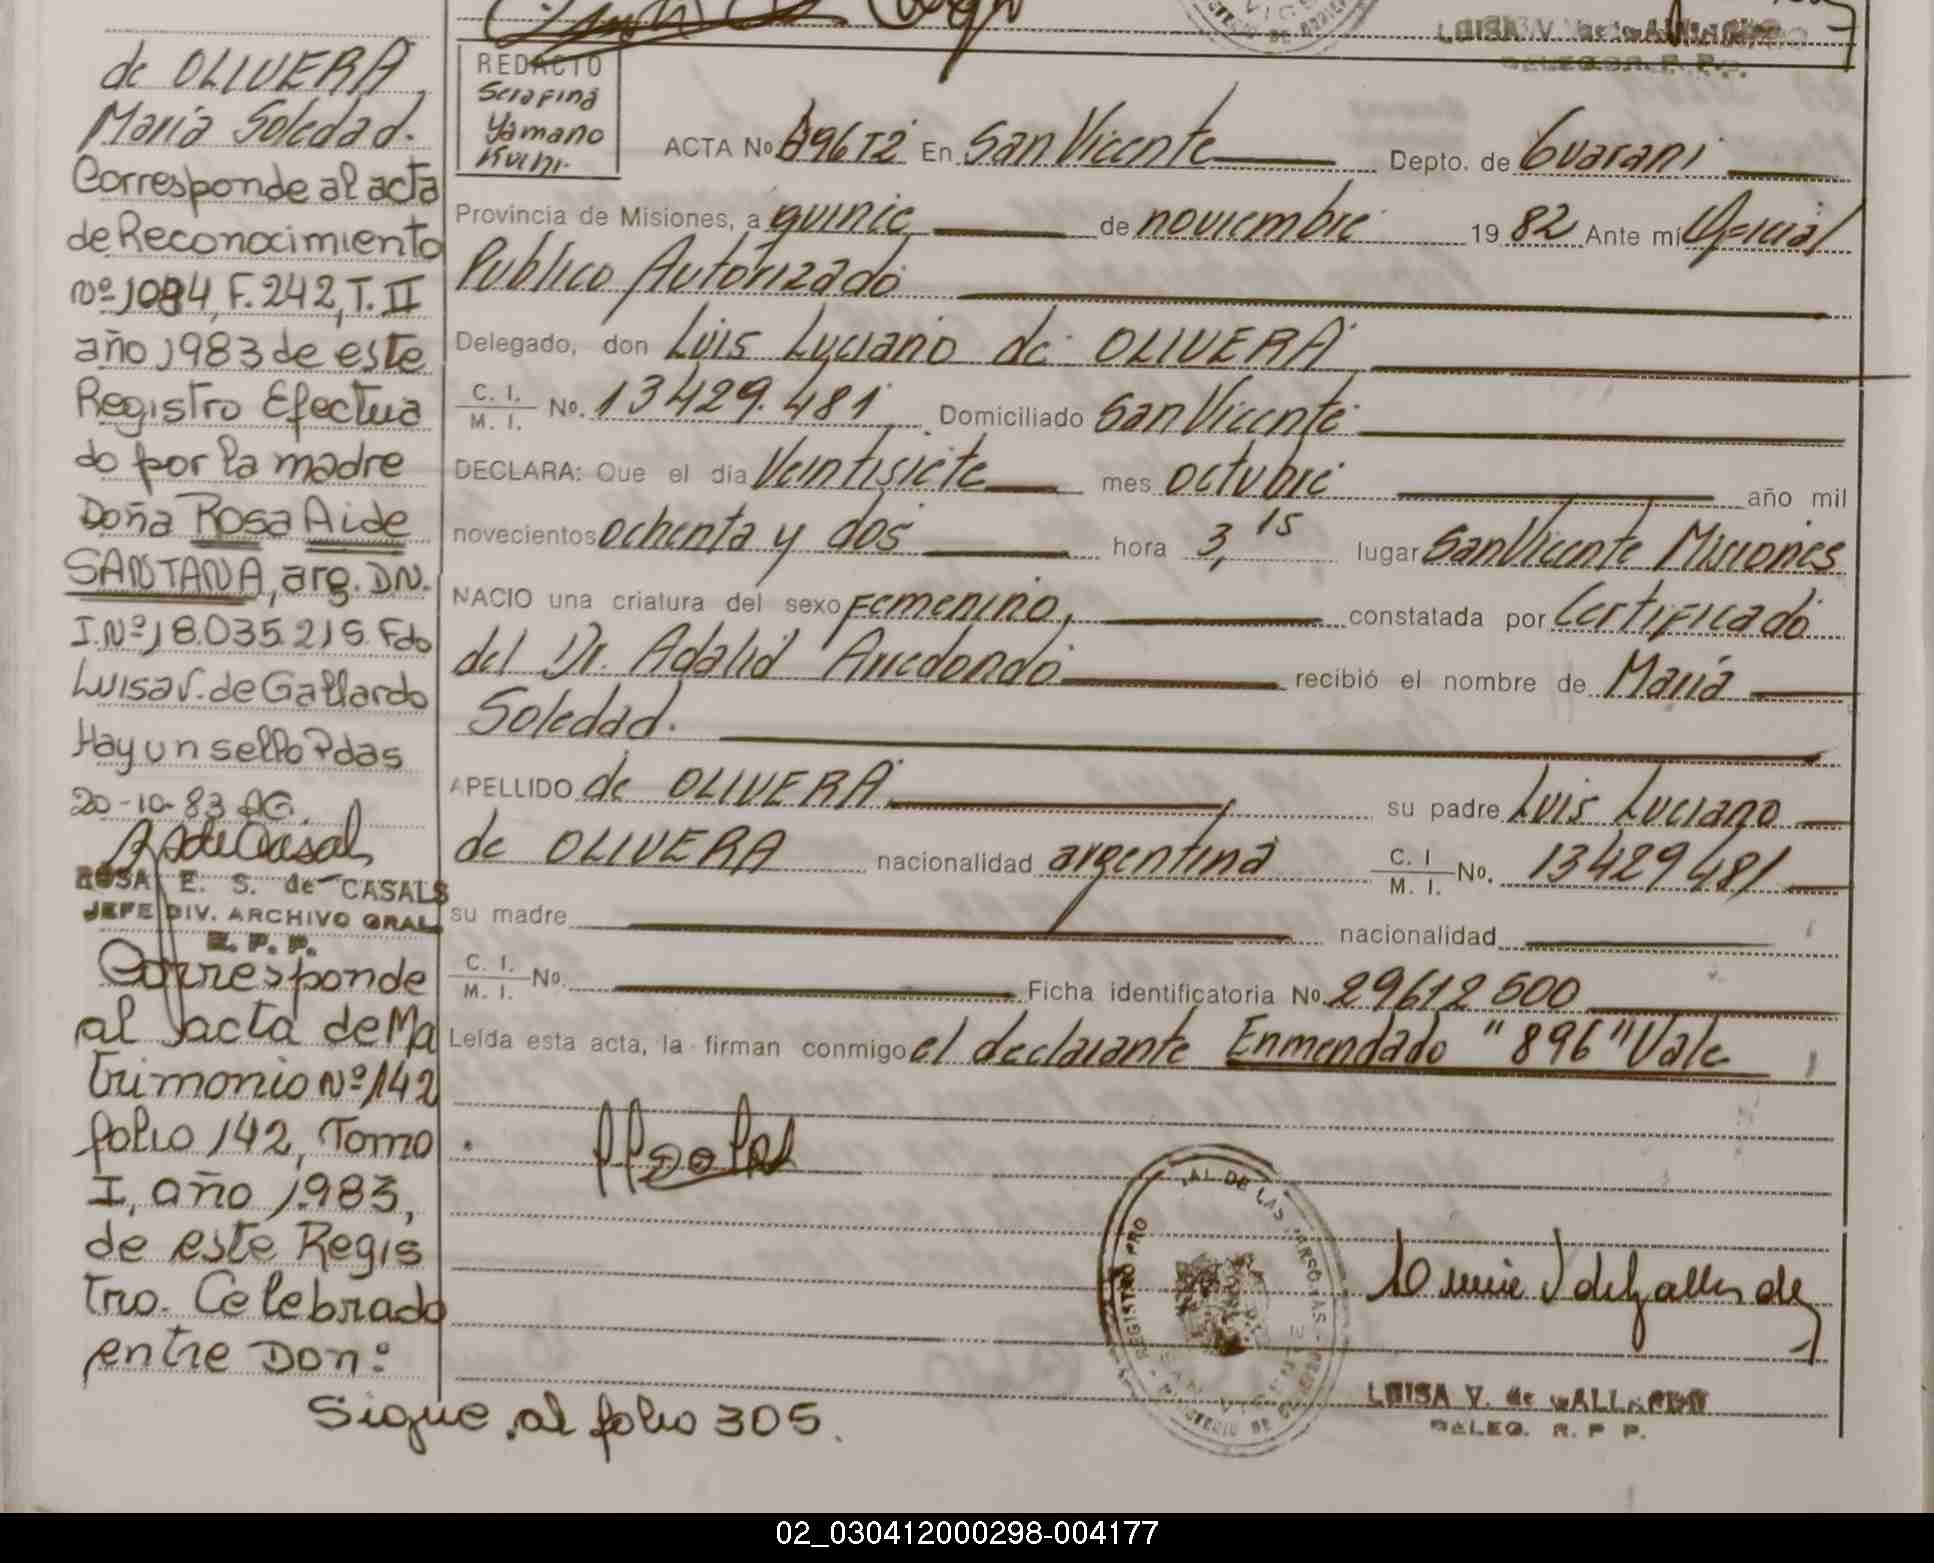 de OLIVERA,
María Soledad.
Corresponde al acta
de Reconocimiento
Nº 1084, F. 242, T. II
año 1983 de este
Registro Efectua
do por la madre
Doña Rosa Aide
SANTANA, arg. D.N.
I. Nº 18.035.215. Fdo
Luisa V. de Gallardo
Hay un sello Pdas
20-10-83 AG.
ROSA E. S. de CASALS
JEFE DIV. ARCHIVO GRAL
R. P. P.
Corresponde
al acta de Ma
trimonio Nº 142
folio 142, Tomo
I, año 1983,
de este Regis
tro. Celebrado
entre Don:
Sigue al folio 305.
REDACTO
Serafina
Yamano
ACTA No 896 T2 En San Vicente Depto. de Guarani
Provincia de Misiones, a quince de noviembre 1982 Ante mí Oficial
Publico Autorizado
Delegado, don Luis Luciano de OLIVERA
C. I. / M. I. No. 13429.481 Domiciliado San Vicente
DECLARA: Que el día Veintisiete mes octubre año mil
novecientos ochenta y dos hora 3,15 lugar San Vicente Misiones
NACIO una criatura del sexo Femenino, constatada por Certificado
del Dr. Adalid Arredondo recibió el nombre de María
Soledad.
APELLIDO de OLIVERA su padre Luis Luciano
de OLIVERA nacionalidad argentina C. I / M. I. No. 13429481
su madre nacionalidad
C. I. / M. I. No. Ficha identificatoria No. 29612500
Leída esta acta, la firman conmigo el declarante Enmendado "896" Vale
LUISA V. de GALLARDO
DELEG. R. P P.
02_030412000298-004177